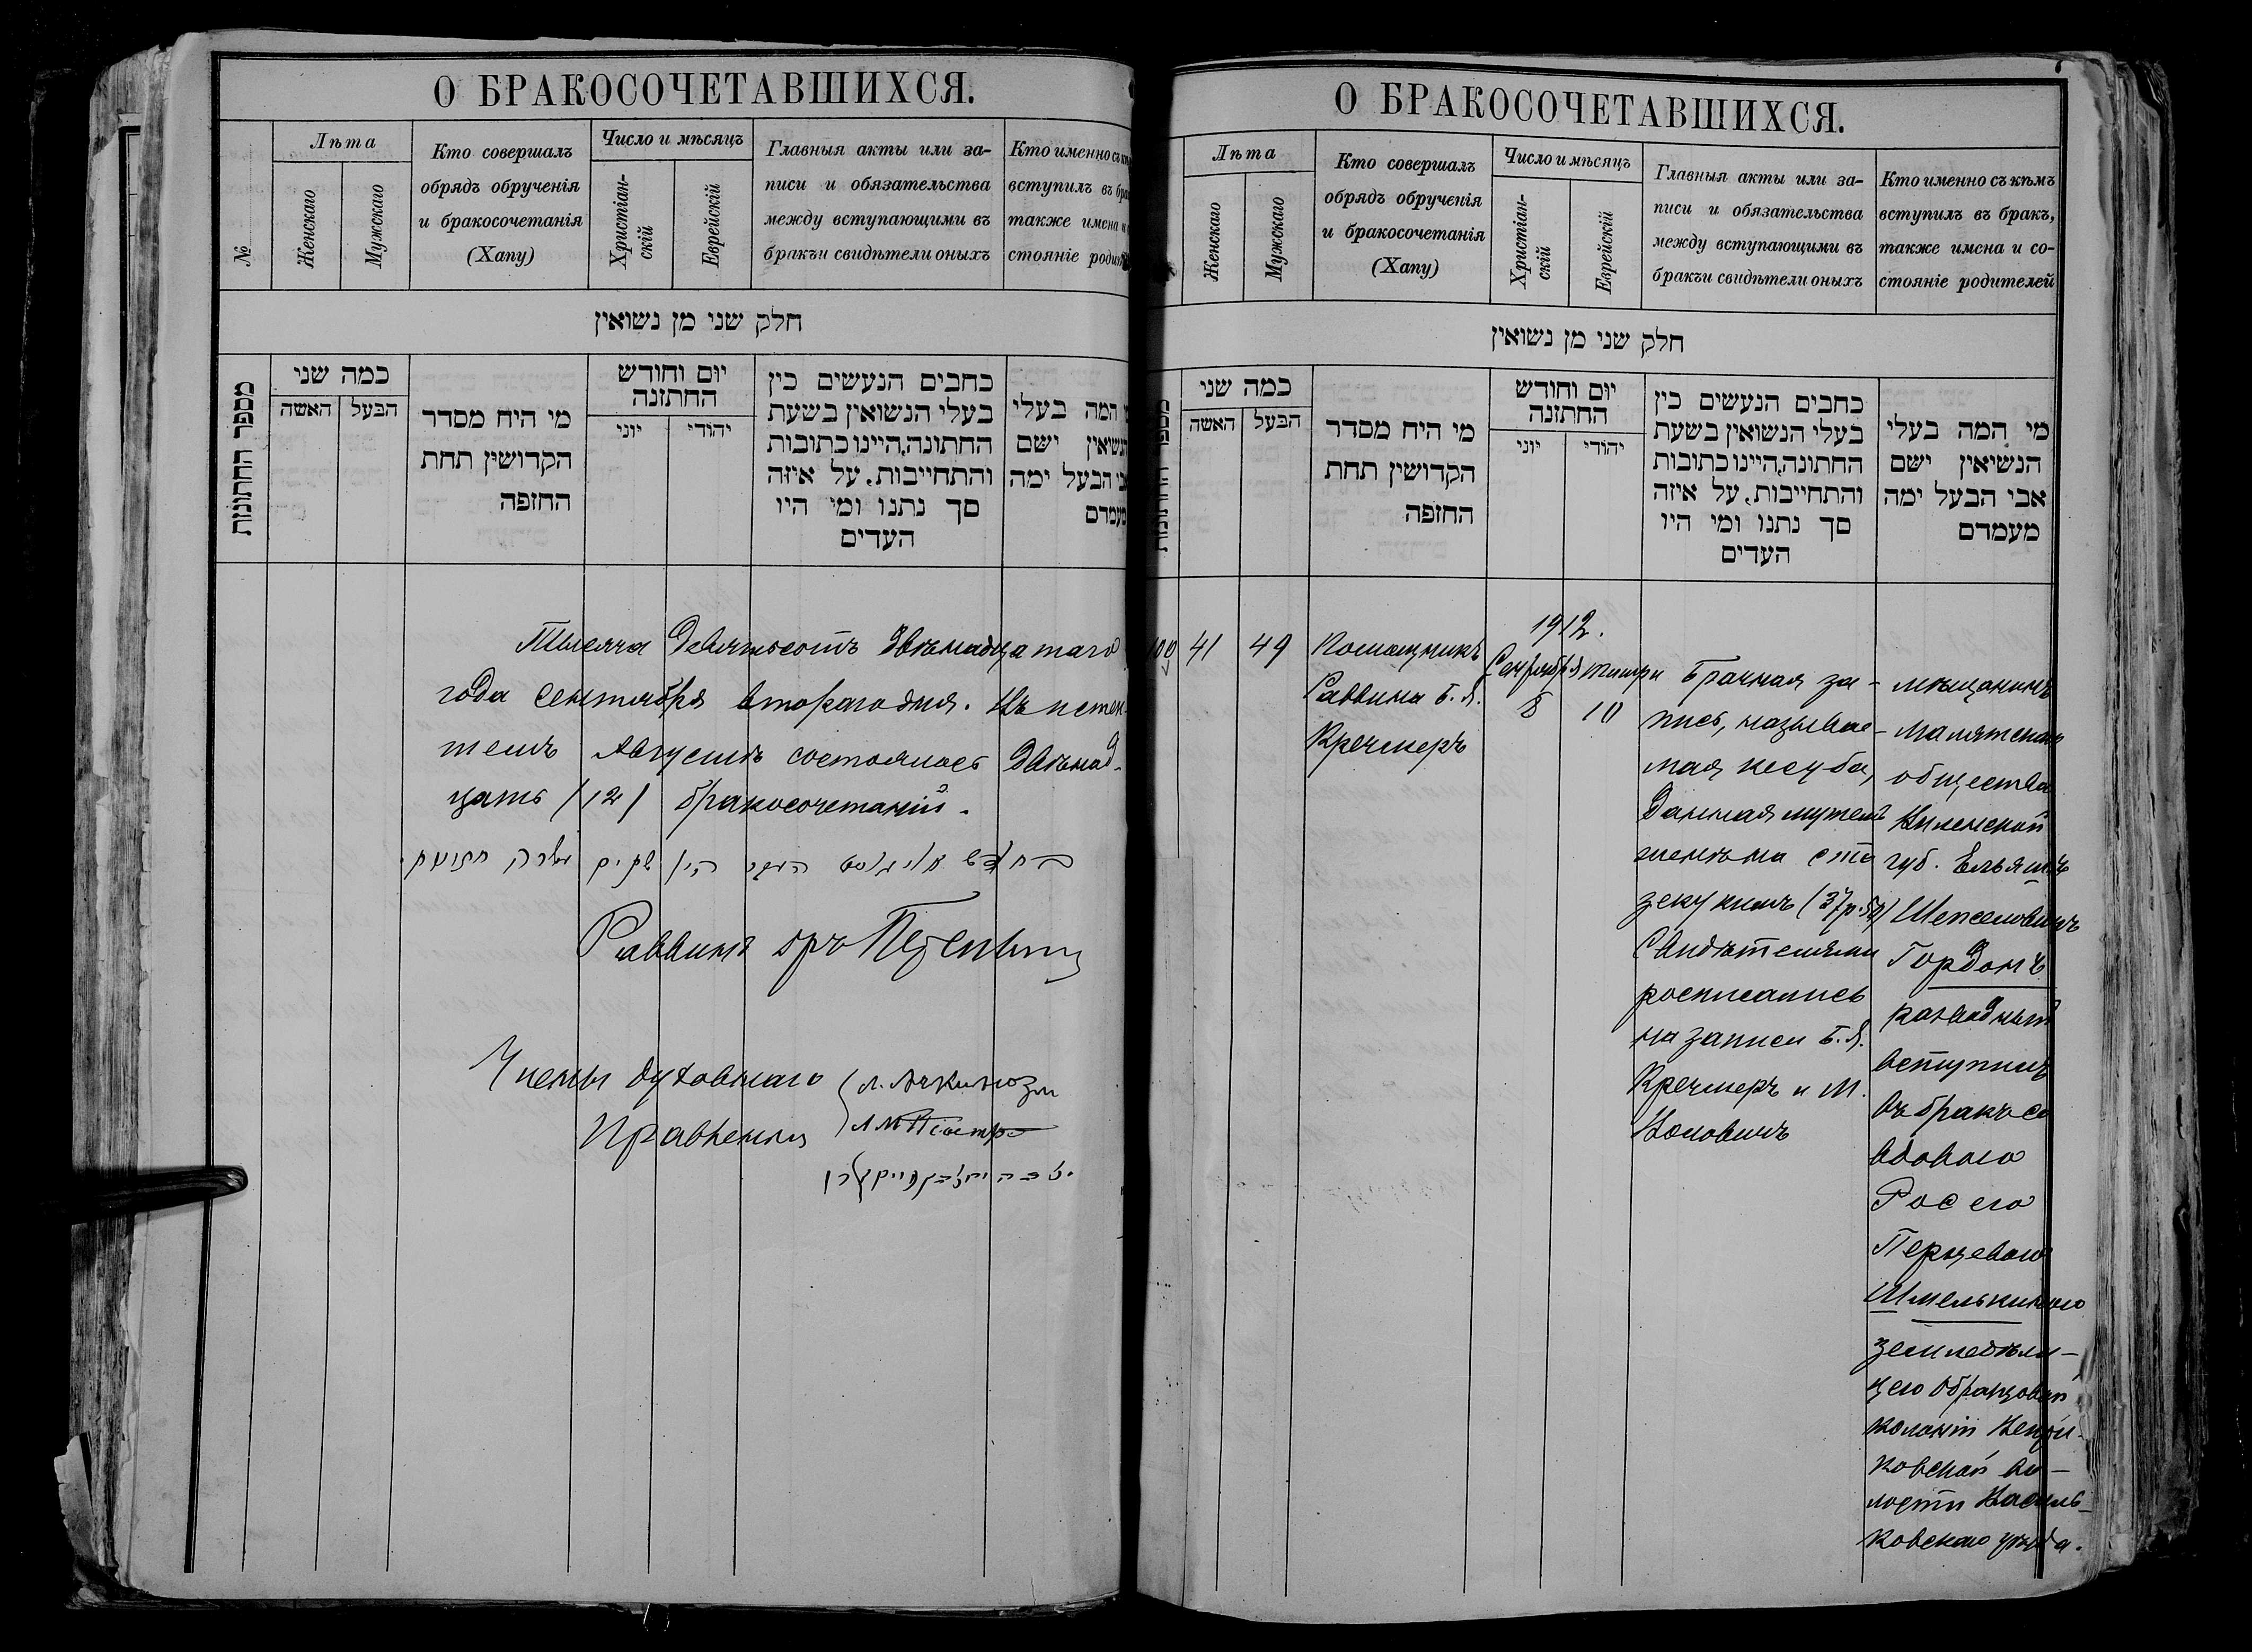 О БРАКОСОЧЕТАВШИХСЯ.
№
Лѣта
Женскаго
Мужскаго
Кто совершалъ
обрядъ обрученія
и бракосочетанія
(Хапу)
Число и мѣсяцъ
Христіан-
скій
Еврейскій
Главныя акты или за-
писи и обязательства
между вступающими въ
бракъи свидѣтели оныхъ
Кто именно съ
вступилъ въ
также имена
стояніе
חלק שני מן נשואין
מספר החתונות
כמה שני
האשה
הבעל
מי היח מסדר
הקדושין תחת
החופה
יום וחודש
החתונה
יוני
יהודי
כתבים הנעשים כין
בעלי הנשואין בשעת
החתונה,היינו כתובות
והתחייבות, על איזה
סך נתנו ומי היו
העדים
המה בעלי
ישם
הבעל ימה
מעמדם
Тысяча девятьсотъ двѣнадцатаго
года сентября второго дня. Въ истек-
темъ Августѣ состоялось двѣнад-
цать /12/ бракосочетаній.
Раввинъ
Члены духовнаго
Правленія
О БРАКОСОЧЕТАВШИХСЯ.
Лѣта
Женскаго
Мужскаго
Кто совершалъ
обрядъ обрученія
и бракосочетанія
(Хапу)
Число и мѣсяцъ
Христіан-
скій
Еврейскій
Главныя акты или за-
писи и обязательства
между вступающими въ
бракъи свидѣтели оныхъ
Кто именно съ кѣмъ
вступилъ въ бракъ,
также имена и со-
стояніе родителей
חלק שני מן נשואין
כמה שני
האשה
הבעל
מי היח מסדר
הקדושין תחת
החופה
יום וחודש
החתונה
יוני
יהודי
כתבים הנעשים כין
בעלי הנשואין בשעת
החתונה,היינו כתובות
והתחייבות, על איזה
סך נתנו ומי היו
העדים
מי המה בעלי
הנשיאין ישם
אבי הבעל ימה
מעמדם
100
41
49
Помощникъ
Раввина Б. Я.
Кречмеръ
1912.
Сентября
8
Тишри
10
Брачная за-
пись, называе-
мая кесуба,
данная мужемъ
женѣ на сто
зекукимъ (37р.50)
Свидѣтелями
росписались
на записи Б. Я.
Кречмеръ и М.
мѣщанинъ
Малятскаго
общества
Виленской
губ. Ельяшъ
Шепселовичъ
Гордонъ
разводный
вступилъ
въ бракъ со
вдовою
Росею
Перцевою
Шмелькиною
земледѣли-
цею Образцовой
колоніи
ковской во-
лости Василь-
ковскаго уѣзда.